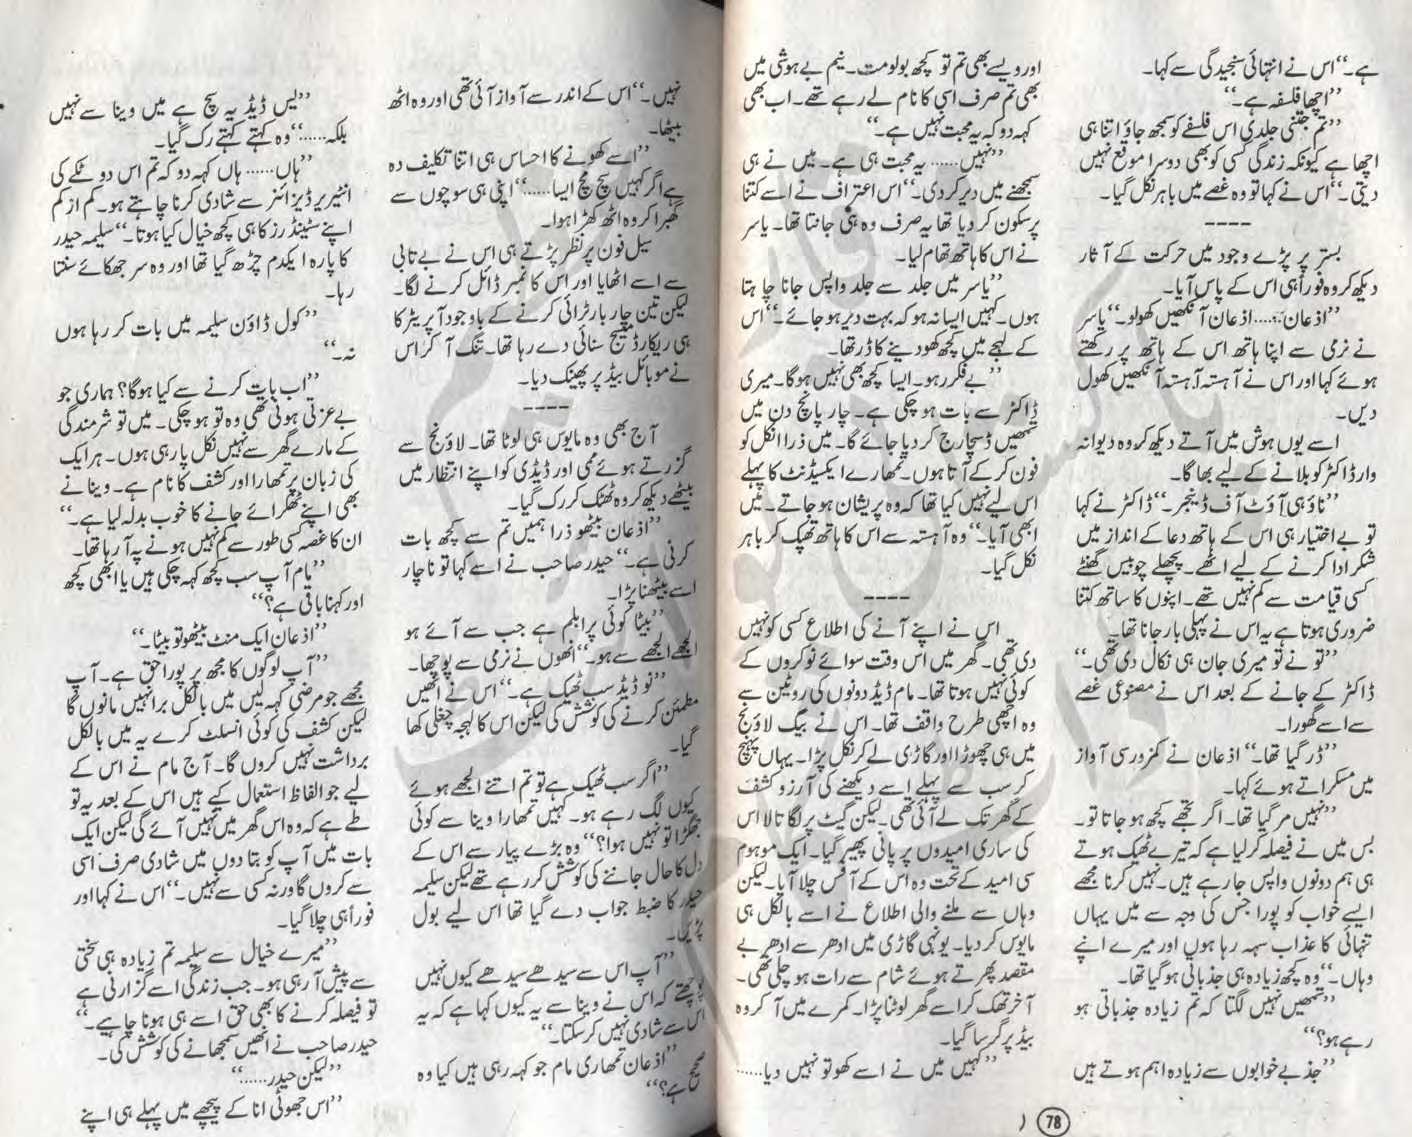 ہے۔‘‘ اس نے انتہائی سنجیدگی سے کہا۔
’’اچھا فلسفہ ہے۔‘‘
’’تم جتنی جلدی اس فلسفے کو سمجھ جاؤ اتنا ہی
اچھا ہے کیونکہ زندگی کسی کو بھی دوسرا موقع نہیں
دیتی۔‘‘ اس نے کہا تو وہ غصے میں باہر نکل گیا۔
----
بستر پر پڑے وجود میں حرکت کے آثار
دیکھ کر وہ فوراً ہی اس کے پاس آیا۔
’’اذعان ...... اذعان آنکھیں کھولو۔‘‘ یاسر
نے نرمی سے اپنا ہاتھ اس کے ہاتھ پر رکھتے
ہوئے کہا اور اس نے آہستہ آہستہ آنکھیں کھول
دیں۔
اسے یوں ہوش میں آتے دیکھ کر وہ دیوانہ
وار ڈاکٹر کو بلانے کے لیے بھاگا۔
’’ناؤ ہی آؤٹ آف ڈینجر۔‘‘ ڈاکٹر نے کہا
تو بے اختیار ہی اس کے ہاتھ دعا کے انداز میں
شکر ادا کرنے کے لیے اٹھے۔ پچھلے چوبیس گھنٹے
کسی قیامت سے کم نہیں تھے۔ اپنوں کا ساتھ کتنا
ضروری ہوتا ہے یہ اس نے پہلی بار جانا تھا۔
’’تو نے تو میری جان ہی نکال دی تھی۔‘‘
ڈاکٹر کے جانے کے بعد اس نے مصنوعی غصے
سے اسے گھورا۔
’’ڈر گیا تھا۔‘‘ اذعان نے کمزور سی آواز
میں مسکراتے ہوئے کہا۔
’’نہیں مر گیا تھا۔ اگر تجھے کچھ ہو جاتا تو۔
بس میں نے فیصلہ کر لیا ہے کہ تیرے ٹھیک ہوتے
ہی ہم دونوں واپس جا رہے ہیں۔ نہیں کرنا مجھے
ایسے خواب کو پورا جس کی وجہ سے میں یہاں
تنہائی کا عذاب سہہ رہا ہوں اور میرے اپنے
وہاں۔‘‘ وہ کچھ زیادہ ہی جذباتی ہو گیا تھا۔
’’تمہیں نہیں لگتا کہ تم زیادہ جذباتی ہو
رہے ہو؟‘‘
’’جذبے خوابوں سے زیادہ اہم ہوتے ہیں
اور ویسے بھی تم تو کچھ بولو مت۔ نیم بے ہوشی میں
بھی تم صرف اسی کا نام لے رہے تھے۔ اب بھی
کہہ دو کہ یہ محبت نہیں ہے۔‘‘
’’نہیں ...... یہ محبت ہی ہے۔ میں نے ہی
سمجھنے میں دیر کر دی۔‘‘ اس اعتراف نے اسے کتنا
پرسکون کر دیا تھا یہ صرف وہ ہی جانتا تھا۔ یاسر
نے اس کا ہاتھ تھام لیا۔
’’یاسر میں جلد سے جلد واپس جانا چاہتا
ہوں۔ کہیں ایسا نہ ہو کہ بہت دیر ہو جائے۔‘‘ اس
کے لہجے میں کچھ کھو دینے کا ڈر تھا۔
’’بے فکر رہو۔ ایسا کچھ بھی نہیں ہوگا۔ میری
ڈاکٹر سے بات ہو چکی ہے۔ چار پانچ دن میں
تمھیں ڈسچارج کر دیا جائے گا۔ میں ذرا انکل کو
فون کر کے آتا ہوں۔ تمھارے ایکسیڈنٹ کا پہلے
اس لیے نہیں کیا تھا کہ وہ پریشان ہو جاتے۔ میں
ابھی آیا۔‘‘ وہ آہستہ سے اس کا ہاتھ تھپک کر باہر
نکل گیا۔
----
اس نے اپنے آنے کی اطلاع کسی کو نہیں
دی تھی۔ گھر میں اس وقت سوائے نوکروں کے
کوئی نہیں ہوتا تھا۔ مام ڈیڈ دونوں کی روٹین سے
وہ اچھی طرح واقف تھا۔ اس نے بیگ لاؤنج
میں ہی چھوڑا اور گاڑی لے کر نکل پڑا۔ یہاں پہنچ
کر سب سے پہلے اسے دیکھنے کی آرزو کشف
کے گھر تک لے آئی تھی۔ لیکن گیٹ پر لگا تالا اس
کی ساری امیدوں پر پانی پھیر گیا۔ ایک موہوم
سی امید کے تحت وہ اس کے آفس چلا آیا۔ لیکن
وہاں سے ملنے والی اطلاع نے اسے بالکل ہی
مایوس کر دیا۔ یونہی گاڑی میں ادھر سے ادھر بے
مقصد پھرتے ہوئے شام سے رات ہو چلی تھی۔
آخر تھک کر اسے گھر لوٹنا پڑا۔ کمرے میں آ کر وہ
بیڈ پر گر سا گیا۔
’’کہیں میں نے اسے کھو تو نہیں دیا......
78
نہیں۔‘‘ اس کے اندر سے آواز آئی تھی اور وہ اٹھ
بیٹھا۔
’’اسے کھونے کا احساس ہی اتنا تکلیف دہ
ہے اگر کہیں سچ مچ ایسا.....‘‘ اپنی ہی سوچوں سے
گھبرا کر وہ اٹھ کھڑا ہوا۔
سیل فون پر نظر پڑتے ہی اس نے بے تابی
سے اسے اٹھایا اور اس کا نمبر ڈائل کرنے لگا۔
لیکن تین چار بار ٹرائی کرنے کے باوجود آپریٹر کا
ہی ریکارڈ میسج سنائی دے رہا تھا۔ تنگ آ کر اس
نے موبائل بیڈ پر پھینک دیا۔
----
آج بھی وہ مایوس ہی لوٹا تھا۔ لاؤنج سے
گزرتے ہوئے ممی اور ڈیڈی کو اپنے انتظار میں
بیٹھے دیکھ کر وہ ٹھٹک کر رک گیا۔
’’اذعان بیٹھو ذرا ہمیں تم سے کچھ بات
کرنی ہے۔‘‘ حیدر صاحب نے اسے کہا تو ناچار
اسے بیٹھنا پڑا۔
’’بیٹا کوئی پرابلم ہے جب سے آئے ہو
الجھے الجھے سے ہو۔‘‘ انھوں نے نرمی سے پوچھا۔
’’نو ڈیڈ سب ٹھیک ہے۔‘‘ اس نے انھیں
مطمئن کرنے کی کوشش کی لیکن اس کا لہجہ چغلی کھا
گیا۔
’’اگر سب ٹھیک ہے تو تم اتنے الجھے ہوئے
کیوں لگ رہے ہو۔ کہیں تمھارا وینا سے کوئی
جھگڑا تو نہیں ہوا؟‘‘ وہ بڑے پیار سے اس کے
دل کا حال جاننے کی کوشش کر رہے تھے لیکن سلیمہ
حیدر کا ضبط جواب دے گیا تھا اس لیے بول
پڑیں۔
’’آپ اس سے سیدھے سیدھے کیوں نہیں
پوچھتے کہ اس نے وینا سے یہ کیوں کہا ہے کہ یہ
اس سے شادی نہیں کر سکتا۔‘‘
’’اذعان تمھاری مام جو کہہ رہی ہیں کیا وہ
صحیح ہے؟‘‘
’’یس ڈیڈ یہ سچ ہے میں وینا سے نہیں
بلکہ......‘‘ وہ کہتے کہتے رک گیا۔
’’ہاں...... ہاں کہہ دو کہ تم اس دو ٹکے کی
انٹیریر ڈیزائنر سے شادی کرنا چاہتے ہو۔ کم از کم
اپنے سٹینڈرز کا ہی کچھ خیال کیا ہوتا۔‘‘ سلیمہ حیدر
کا پارہ ایکدم چڑھ گیا تھا اور وہ سر جھکائے سنتا
رہا۔
’’کول ڈاؤن سلیمہ میں بات کر رہا ہوں
نہ۔‘‘
’’اب بات کرنے سے کیا ہوگا؟ ہماری جو
بے عزتی ہونی تھی وہ تو ہو چکی۔ میں تو شرمندگی
کے مارے گھر سے نہیں نکل پا رہی ہوں۔ ہر ایک
کی زبان پر تمھارا اور کشف کا نام ہے۔ وینا نے
بھی اپنے ٹھکرائے جانے کا خوب بدلہ لیا ہے۔‘‘
ان کا غصہ کسی طور سے کم نہیں ہونے پہ آ رہا تھا۔
’’مام آپ سب کچھ کہہ چکی ہیں یا ابھی کچھ
اور کہنا باقی ہے؟‘‘
’’اذعان ایک منٹ بیٹھو تو بیٹا۔‘‘
’’آپ لوگوں کا مجھ پر پورا حق ہے۔ آپ
مجھے جو مرضی کہہ لیں میں بالکل برا نہیں مانوں گا
لیکن کشف کی کوئی انسلٹ کرے یہ میں بالکل
برداشت نہیں کروں گا۔ آج مام نے اس کے
لیے جو الفاظ استعمال کیے ہیں اس کے بعد یہ تو
طے ہے کہ وہ اس گھر میں نہیں آئے گی لیکن ایک
بات میں آپ کو بتا دوں میں شادی صرف اسی
سے کروں گا ورنہ کسی سے نہیں۔‘‘ اس نے کہا اور
فوراً ہی چلا گیا۔
’’میرے خیال سے سلیمہ تم زیادہ ہی سختی
سے پیش آ رہی ہو۔ جب زندگی اسے گزارنی ہے
تو فیصلہ کرنے کا بھی حق اسے ہی ہونا چاہیے۔‘‘
حیدر صاحب نے انھیں سمجھانے کی کوشش کی۔
’’لیکن حیدر.....‘‘
’’اس جھوٹی انا کے پیچھے میں پہلے ہی اپنے